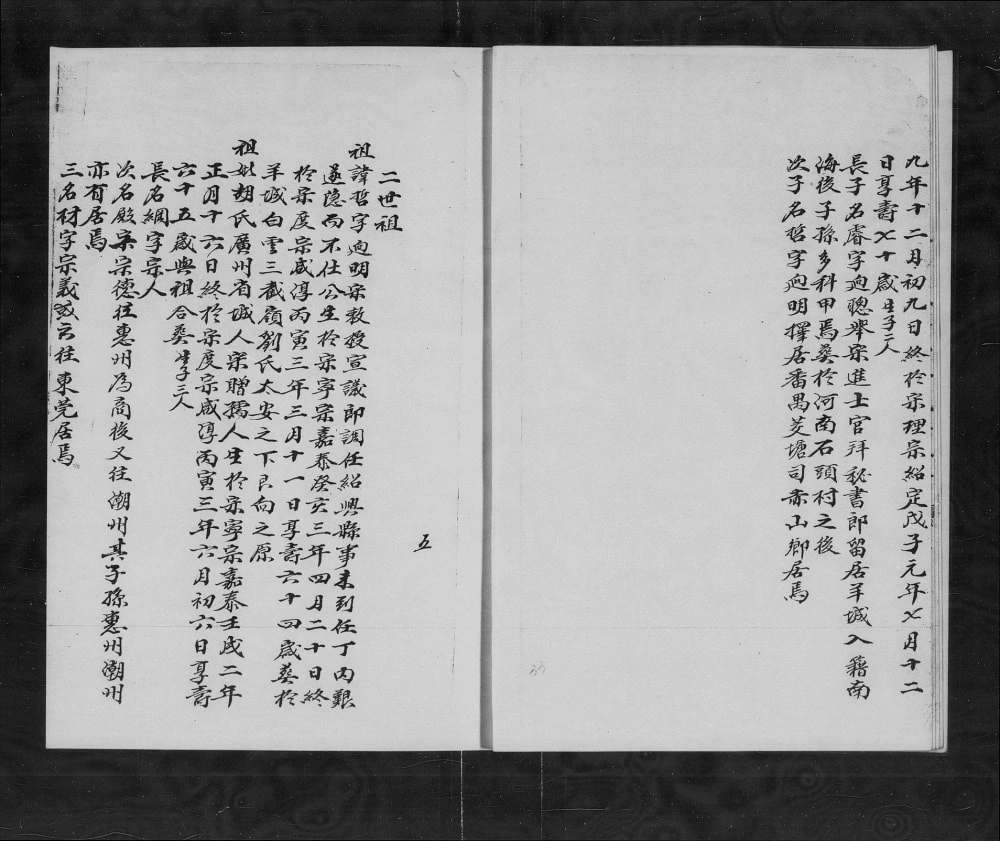 九年十二月初九日終於宗理宗紹定戊子元年七月十二
日享壽七十歲生子二人
長子名睿字廸聰舉宗進士官拜秘書郎留居羊城入籍南
海後子孫多科甲焉葬於河南石頭村之後
次子名哲字廸明擇居番禺茭塘司赤山鄉居焉
五
二世祖
祖諱哲字廸明宗教授宣議郎調任紹興縣事未到任丁內艱
遂隐而不仕公生於宗寧宗嘉泰癸亥三年四月二十日終
於宗度宗咸淳丙寅三年三月十一日享壽六十四歲葬於
羊城白雲三截嶺劉氏太安之下艮向之原
祖妣胡氏廣州省城人宗贈孺人生於宗寧宗嘉泰壬戌二年
正月十六日終於宗度宗咸淳丙寅三年六月初六日享壽
六十五歲與祖合葬生子三人
長名綱字宗人
次名殿字宗德往惠州為商後又往潮州其子孫惠州潮州
亦有居焉
三名材字宗義或云往東莞居焉
33